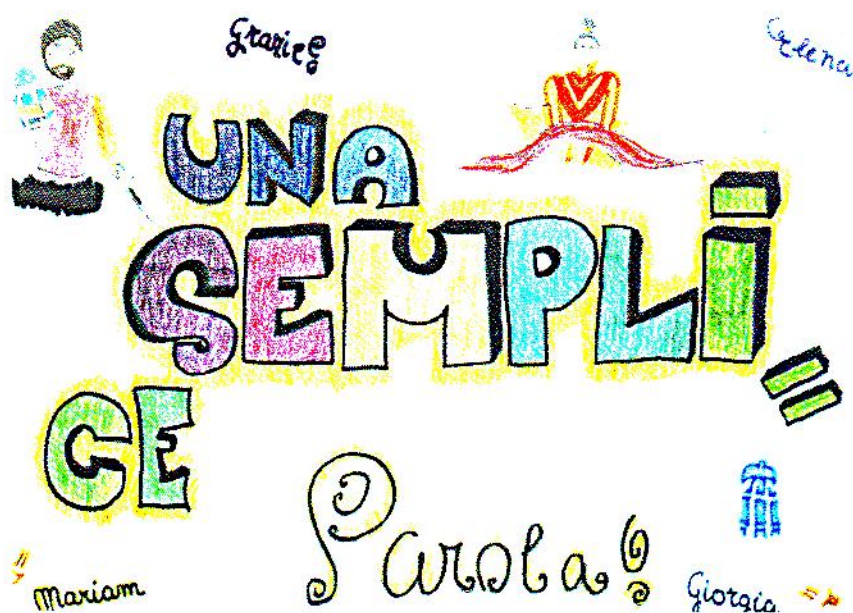 Grazie!
Elena
UNA
SEMPLI=
CE
Parola!
Mariam
Giorgia